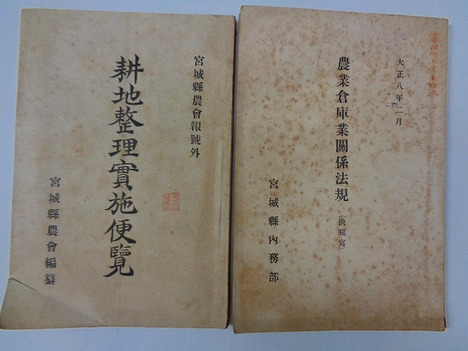 宮城縣農會報號外
耕地整理實施便覽
宮城縣農會編纂
大正八年一月
農業倉庫業關係法規
宮城縣內務部